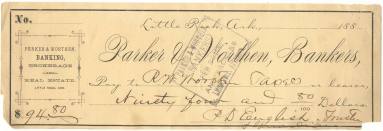 No.
Little Rock, Ark., 188
PARKER & WORTHEN,
BANKING,
BROKERAGE
AND
REAL ESTATE.
LITTLE ROCK, ARK.
Parker & Worthen, Bankers,
Pay to R W Worthen Taxes or bearer,
Ninety four and 80/100 Dollars
$ 94.80
P D English Trustee